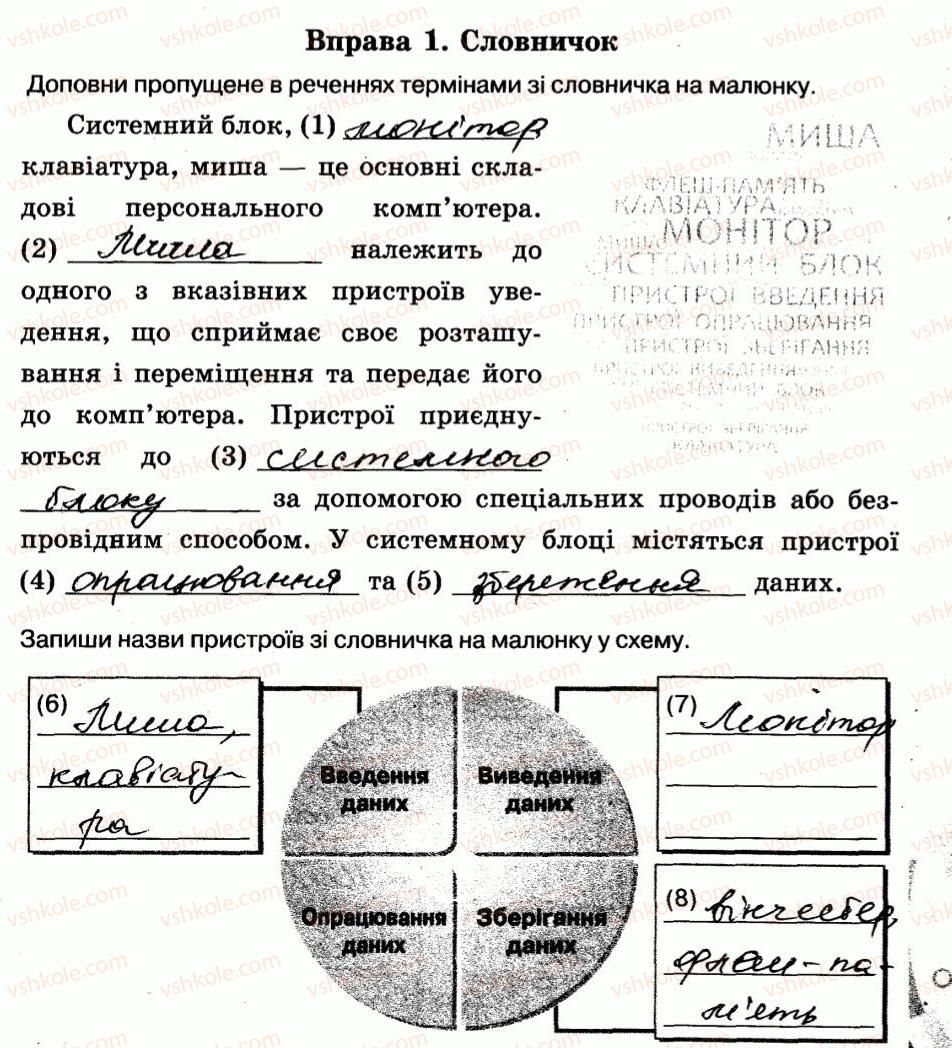 Вправа 1. Словничок
Доповни пропущене в реченнях термінами зі словничка на малюнку.
Системний блок, (1) монітор
клавіатура, миша — це основні скла-
дові персонального комп'ютера.
(2) Миша належить до
одного з вказівних пристроїв уве-
дення, що сприймає своє розташу-
вання і переміщення та передає його
до комп'ютера. Пристрої приєдну-
ються до (3) системного
блоку за допомогою спеціальних проводів або без-
провідним способом. У системному блоці містяться пристрої
(4) опрацювання та (5) збереження даних.
МИША
ФЛЕШ-ПАМ'ЯТЬ
КЛАВІАТУРА
МОНІТОР
СИСТЕМНИЙ БЛОК
ПРИСТРОЇ ВВЕДЕННЯ
ПРИСТРОЇ ОПРАЦЮВАННЯ
ПРИСТРОЇ ЗБЕРІГАННЯ
ПРИСТРОЇ ВИВЕДЕННЯ
СИСТЕМНИЙ БЛОК
ПРИСТРОЇ ЗБЕРІГАННЯ
КЛАВІАТУРА
Запиши назви пристроїв зі словничка на малюнку у схему.
(6) Миша,
клавіату-
ра
Введення
даних
Виведення
даних
(7) Монітор
Опрацювання
даних
Зберігання
даних
(8) вінчестер,
флеш-па-
м'ять
vshkole.com